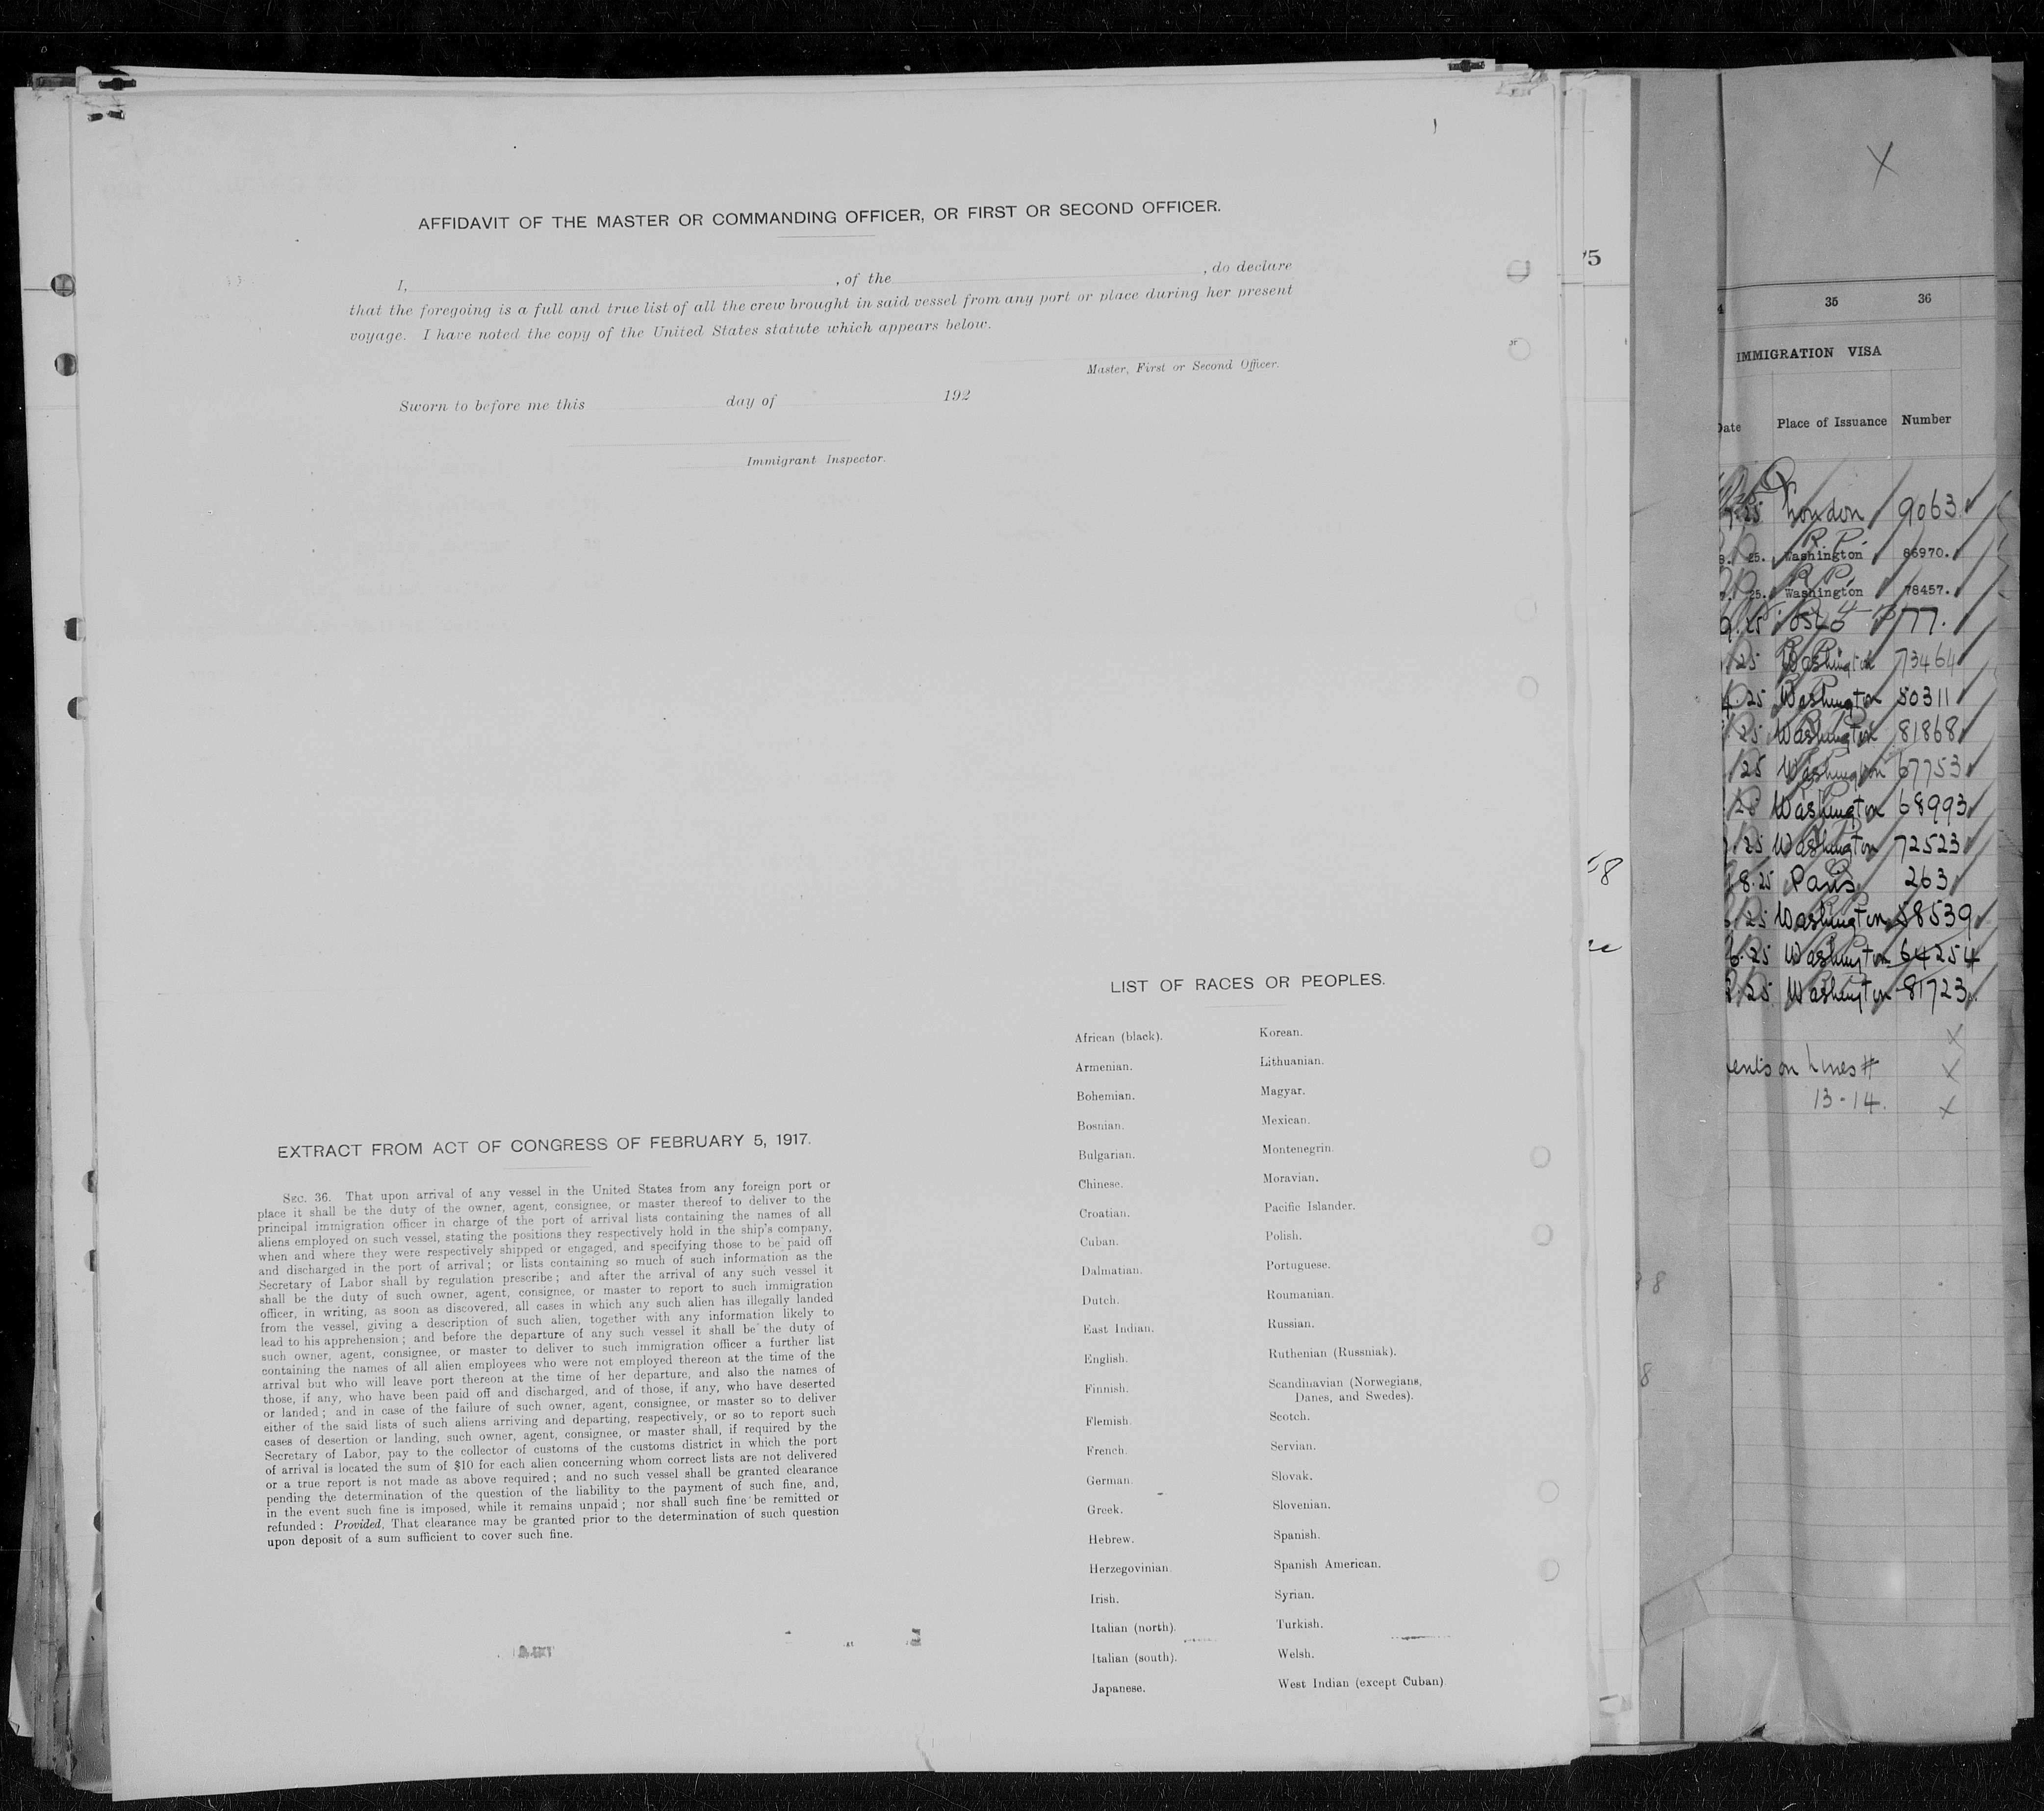 AFFIDAVIT OF THE MASTER OR COMMANDING OFFICER, OR FIRST OR SECOND OFFICER.
I, , of the , do declare
that the foregoing is a full and true list of all the crew brought in said vessel from any port or place during her present
voyage. I have noted the copy of the United States statute which appears below.
Master, First or Second Officer.
Sworn to before me this day of 192
Immigrant Inspector.
EXTRACT FROM ACT OF CONGRESS OF FEBRUARY 5, 1917.
SEC. 36. That upon arrival of any vessel in the United States from any foreign port or
place it shall be the duty of the owner, agent, consignee, or master thereof to deliver to the
principal immigration officer in charge of the port of arrival lists containing the names of all
aliens employed on such vessel, stating the positions they respectively hold in the ship's company,
when and where they were respectively shipped or engaged, and specifying those to be paid off
and discharged in the port of arrival; or lists containing so much of such information as the
Secretary of Labor shall by regulation prescribe; and after the arrival of any such vessel it
shall be the duty of such owner, agent, consignee, or master to report to such immigration
officer, in writing, as soon as discovered, all cases in which any such alien has illegally landed
from the vessel, giving a description of such alien, together with any information likely to
lead to his apprehension; and before the departure of any such vessel it shall be the duty of
such owner, agent, consignee, or master to deliver to such immigration officer a further list
containing the names of all alien employees who were not employed thereon at the time of the
arrival but who will leave port thereon at the time of her departure, and also the names of
those, if any, who have been paid off and discharged, and of those, if any, who have deserted
or landed; and in case of the failure of such owner, agent, consignee, or master so to deliver
either of the said lists of such aliens arriving and departing, respectively, or so to report such
cases of desertion or landing, such owner, agent, consignee, or master shall, if required by the
Secretary of Labor, pay to the collector of customs of the customs district in which the port
of arrival is located the sum of $10 for each alien concerning whom correct lists are not delivered
or a true report is not made as above required; and no such vessel shall be granted clearance
pending the determination of the question of the liability to the payment of such fine, and,
in the event such fine is imposed, while it remains unpaid; nor shall such fine be remitted or
refunded: Provided, That clearance may be granted prior to the determination of such question
upon deposit of a sum sufficient to cover such fine.
LIST OF RACES OR PEOPLES.
African (black).
Armenian.
Bohemian.
Bosnian.
Bulgarian.
Chinese.
Croatian.
Cuban.
Dalmatian.
Dutch.
East Indian.
English.
Finnish.
Flemish.
French.
German.
Greek.
Hebrew.
Herzegovinian.
Irish.
Italian (north).
Italian (south).
Japanese.
Korean.
Lithuanian.
Magyar.
Mexican.
Montenegrin.
Moravian.
Pacific Islander.
Polish.
Portuguese.
Roumanian.
Russian.
Ruthenian (Russniak).
Scandinavian (Norwegians,
Danes, and Swedes).
Scotch.
Servian.
Slovak.
Slovenian.
Spanish.
Spanish American.
Syrian.
Turkish.
Welsh.
West Indian (except Cuban)
X
35 36
IMMIGRATION VISA
Date Place of Issuance Number
25 London 9063
R.P.
25. Washington 86970.
R.P.
25. Washington 78457.
25 Oslo 77.
25 Washington 73464
25 Washington 80311
25 Washington 81868
25 Washington 67753
25 Washington 68993
25 Washington 72523
8.25 Paris 263
25 Washington 58539
25 Washington 64254
25 Washington 81723
on lines #
13-14.